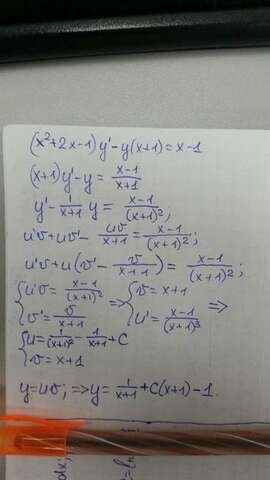 (x²+2x-1)y'-y(x+1)=x-1
(x+1)y'-y=\frac{x-1}{x+1}
y'-\frac{1}{x+1}y=\frac{x-1}{(x+1)²};
u'v+uv'-\frac{uv}{x+1}=\frac{x-1}{(x+1)²};
u'v+u(v'-\frac{v}{x+1})=\frac{x-1}{(x+1)²};
{u'v=\frac{x-1}{(x+1)²} => {v=x+1 =>
{v'=\frac{v}{x+1} {u'=\frac{x-1}{(x+1)³}
{u=\frac{1}{(x+1)²}-\frac{1}{x+1}+C
{v=x+1
y=uv; => y=\frac{1}{x+1}+C(x+1)-1.
dx;